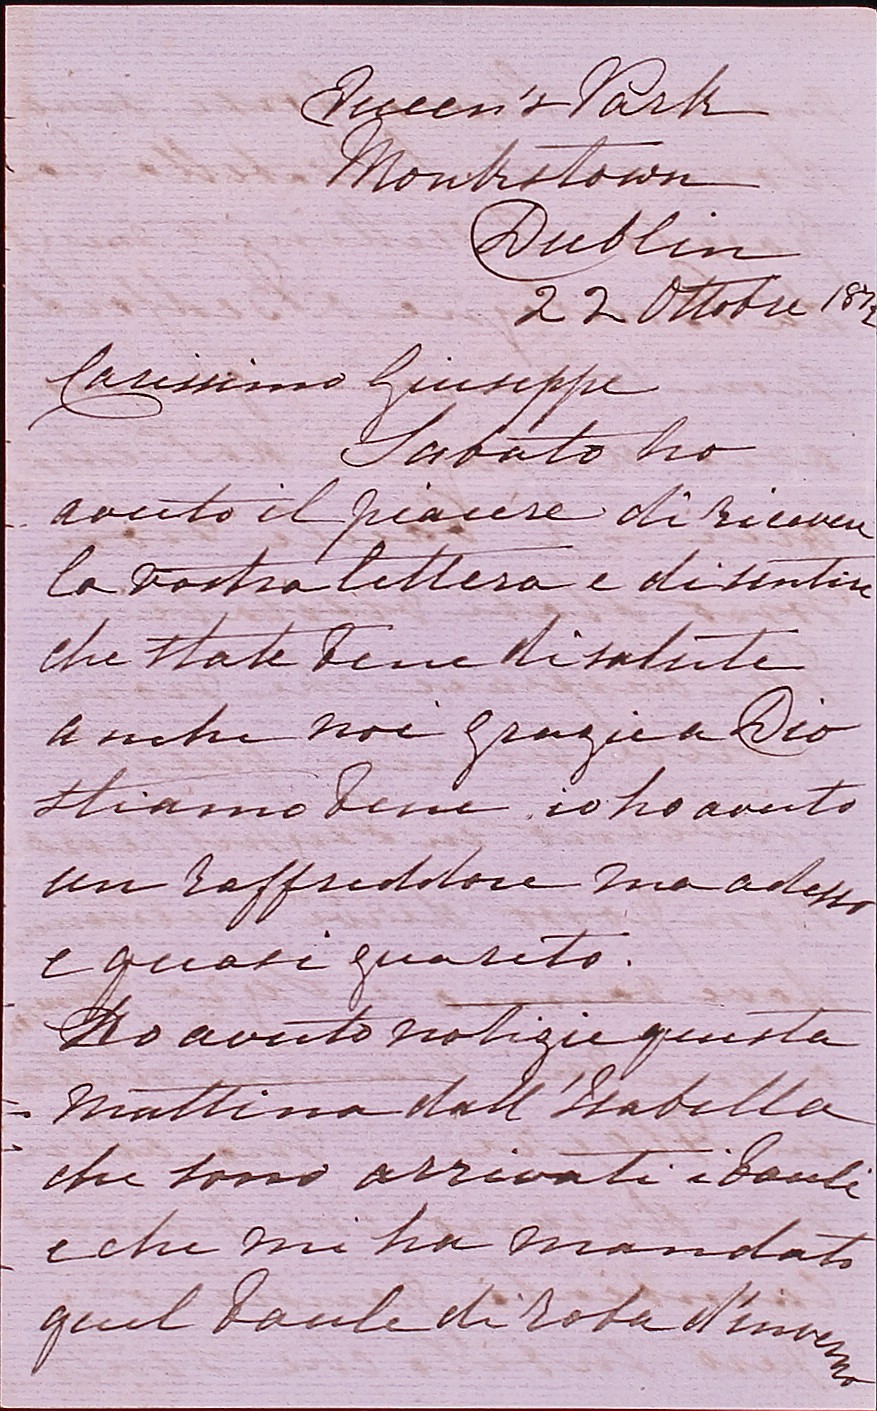 Queen's Park
Monkstown
Dublin
22 Ottobre 187
Carissimo Giuseppe
Sabato ho
avuto il piacere di ricevere
la vostra lettera e di sentire
che state bene di salute
anche noi grazie a Dio
stiamo bene io ho avuto
un raffreddore ma adesso
e quasi guarito.
Ho avuto notizie questa
mattina dall'Isabella
che sono arrivati i bauli
e che mi ha mandato
quel baule di roba d'inverno